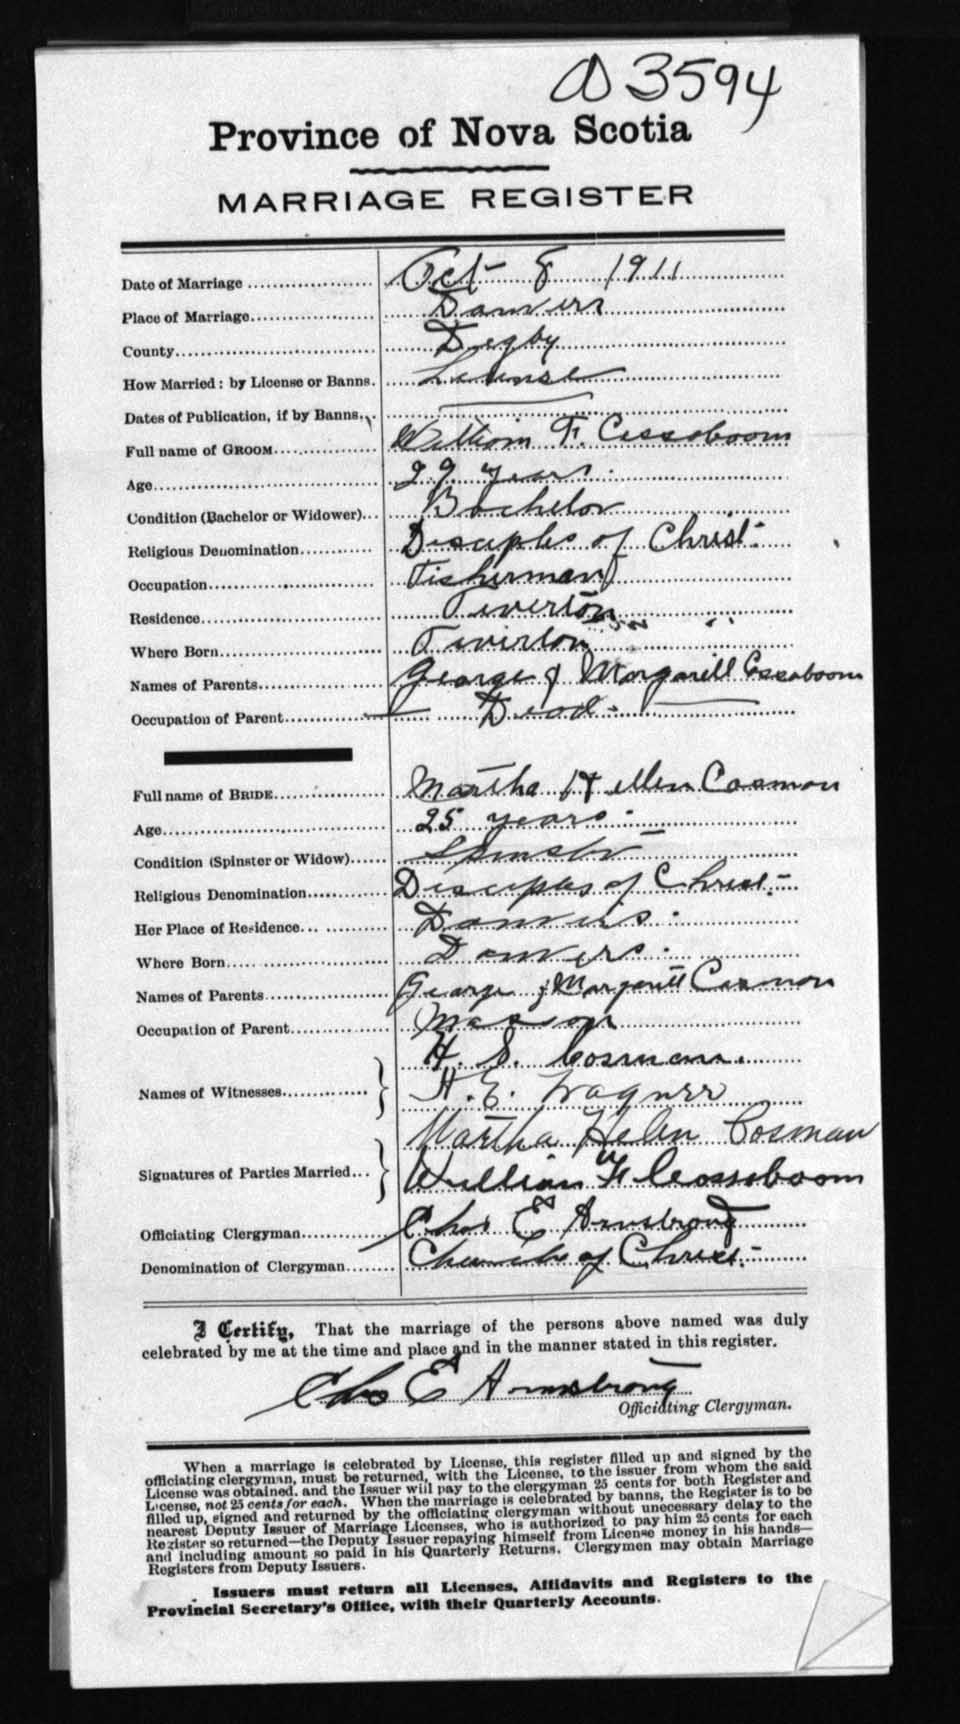 A 3594
Province of Nova Scotia
MARRIAGE REGISTER
Date of Marriage Oct 8 1911
Place of Marriage Danvers
County Digby
How Married: by License or Banns. License
Dates of Publication, if by Banns.
Full name of GROOM William F. Cossaboom
Age 29 years.
Condition (Bachelor or Widower) Bachelor
Religious Denomination Disciples of Christ
Occupation Fisherman
Residence Tiverton
Where Born Tiverton
Names of Parents George & Margarett Cossaboom
Occupation of Parent Dead
Full name of BRIDE Martha Hellen Cosman
Age 25 years
Condition (Spinster or Widow) Spinster
Religious Denomination Disciples of Christ
Her Place of Residence Danvers
Where Born Danvers
Names of Parents George & Margarett Cosmon
Occupation of Parent Mason
H. S. Cosman.
Names of Witnesses H. E. Wagner
Martha Helen Cosman
Signatures of Parties Married William F Cossaboom
Officiating Clergyman Chas E Armstrong
Denomination of Clergyman Church of Christ
I Certify, That the marriage of the persons above named was duly
celebrated by me at the time and place and in the manner stated in this register.
Chas E Armstrong
Officiating Clergyman.
When a marriage is celebrated by License, this register filled up and signed by the
officiating clergyman, must be returned, with the License, to the issuer from whom the said
License was obtained, and the Issuer will pay to the clergyman 25 cents for both Register and
License, not 25 cents for each. When the marriage is celebrated by banns, the Register is to be
filled up, signed and returned by the officiating clergyman without unnecessary delay to the
nearest Deputy Issuer of Marriage Licenses, who is authorized to pay him 25 cents for each
Register so returned—the Deputy Issuer repaying himself from License money in his hands—
and including amount so paid in his Quarterly Returns. Clergymen may obtain Marriage
Registers from Deputy Issuers.
Issuers must return all Licenses, Affidavits and Registers to the
Provincial Secretary's Office, with their Quarterly Accounts.